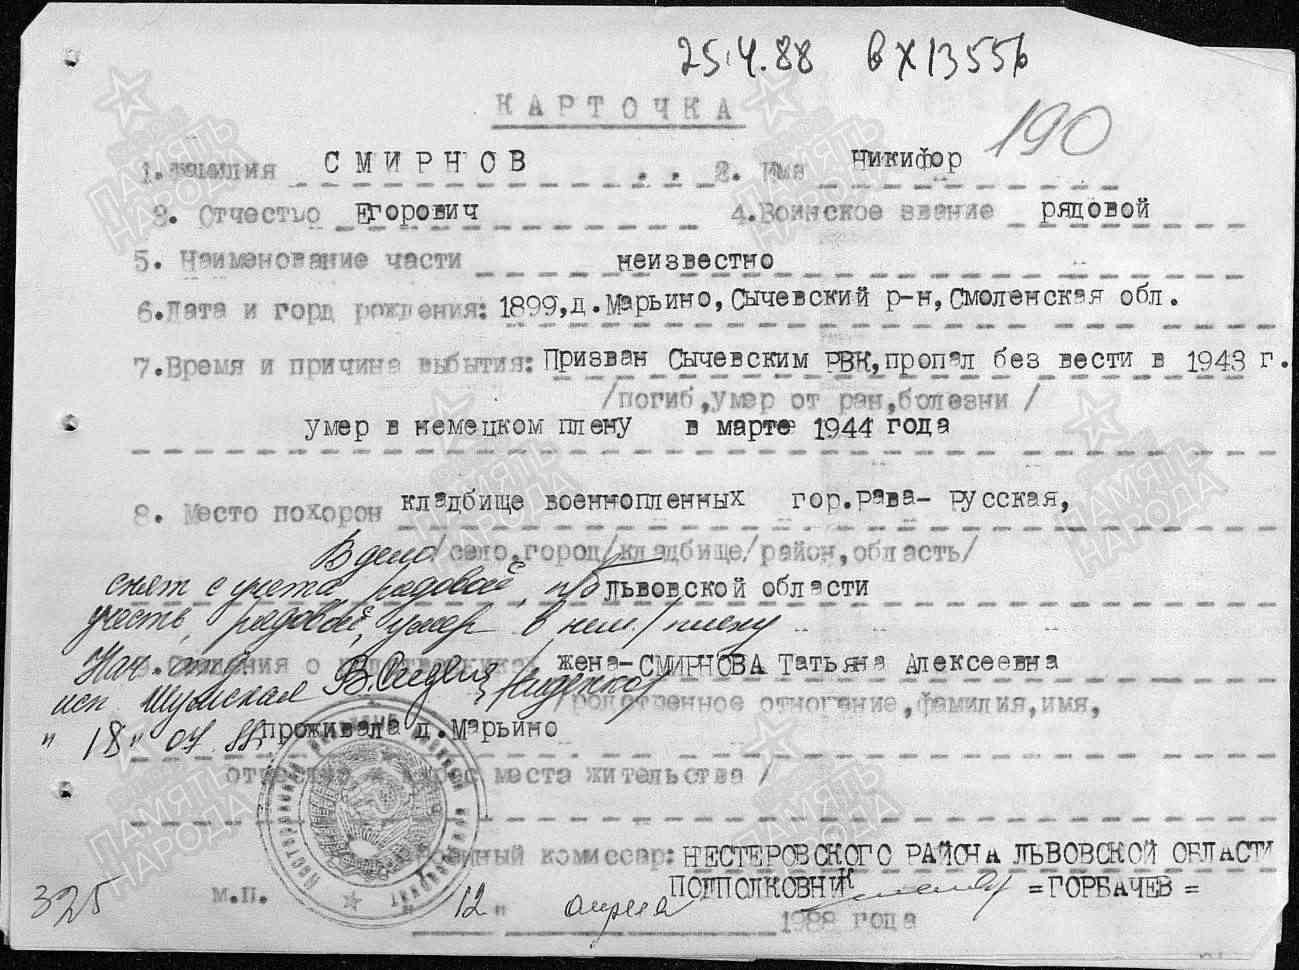 25.4.88 вх 13556
КАРТОЧКА
190
1. Фамилия СМИРНОВ 2. Имя Никифор
3. Отчество Егорович 4. Воинское звание рядовой
5. Наименование части неизвестно
6. Дата и горд рождения: 1899, д. Марьино, Сычевский р-н, Смоленская обл.
7. Время и причина выбытия: Призван Сычевским РВК, пропал без вести в 1943 г.
/погиб, умер от ран, болезни /
умер в немецком плену в марте 1944 года
8. Место похорон кладбище военнопленных гор. Рава-Русская,
В дело /село, город/кладбище/район, область/
снят с учета рядовой, п/о Львовской области
учесть рядовой, умер в нем. плену
Нач. отд. жена-СМИРНОВА Татьяна Алексеевна
исп Шумская /родственное отношение, фамилия, имя,
"18" 07 88 проживала д. Марьино
отчество и адрес места жительства /
Военный комиссар: НЕСТЕРОВСКОГО РАЙОНА ЛЬВОВСКОЙ ОБЛАСТИ
ПОДПОЛКОВНИК =ГОРБАЧЕВ=
325 М.П. "12" апреля 1988 года
ПАМЯТЬ НАРОДА